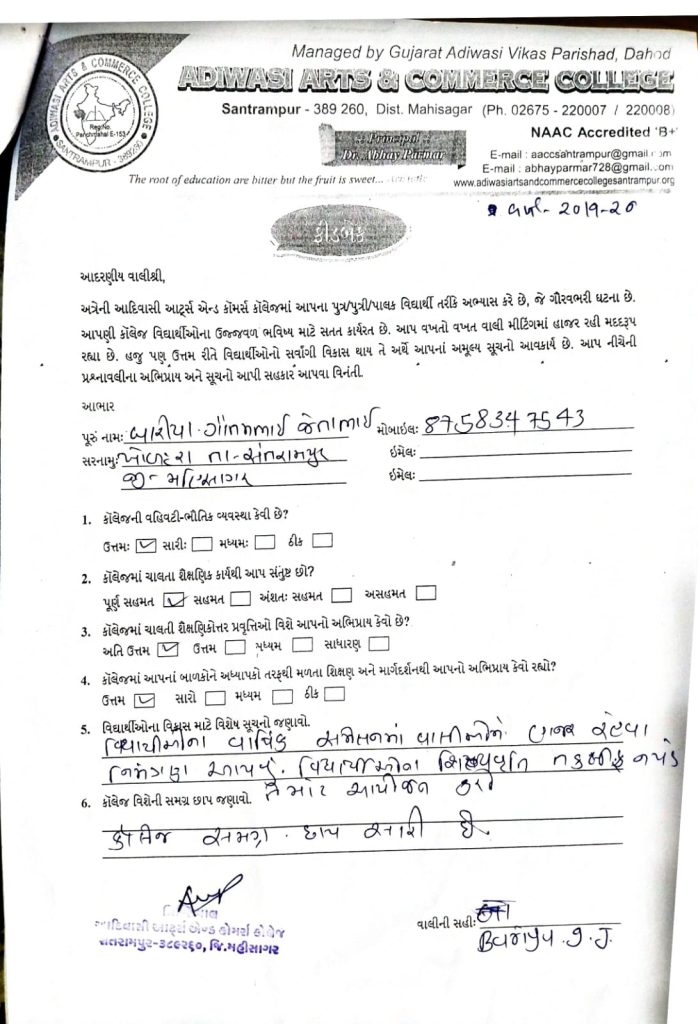 Managed by Gujarat Adiwasi Vikas Parishad, Dahod
ADIWASI ARTS & COMMERCE COLLEGE
ADIWASI ARTS & COMMERCE COLLEGE
Reg.No.
Panchmahal E-153
SANTRAMPUR - 389260
Santrampur - 389 260, Dist. Mahisagar (Ph. 02675 - 220007 / 220008)
NAAC Accredited 'B+'
:: Principal ::
Dr. Abhay Parmar
E-mail : aaccsantrampur@gmail.com
E-mail : abhayparmar728@gmail.com
The root of education are bitter but the fruit is sweet...
www.adiwasiartsandcommercecollegesantrampur.org
વર્ષ- 2019-20
ફીડબેક
આદરણીય વાલીશ્રી,
અત્રેની આદિવાસી આર્ટ્સ એન્ડ કૉમર્સ કૉલેજમાં આપના પુત્ર/પુત્રી/પાલક વિદ્યાર્થી તરીકે અભ્યાસ કરે છે, જે ગૌરવભરી ઘટના છે.
આપણી કૉલેજ વિદ્યાર્થીઓના ઉજ્જવળ ભવિષ્ય માટે સતત કાર્યરત છે. આપ વખતો વખત વાલી મીટિંગમાં હાજર રહી મદદરૂપ
રહ્યા છે. હજુ પણ ઉત્તમ રીતે વિદ્યાર્થીઓનો સર્વાંગી વિકાસ થાય તે અર્થે આપનાં અમૂલ્ય સૂચનો આવકાર્ય છે. આપ નીચેની
પ્રશ્નાવલીના અભિપ્રાય અને સૂચનો આપી સહકાર આપવા વિનંતી.
આભાર
પૂરું નામઃ બારીયા ગૌતમભાઈ જેતાભાઈ મોબાઈલઃ 8758347543
સરનામુઃ તા-સંતરામપુર ઇમેલઃ
જી-મહિસાગર ઇમેલઃ
1. કૉલેજની વહિવટી-ભૌતિક વ્યવસ્થા કેવી છે?
ઉત્તમઃ ✓ સારીઃ મધ્યમઃ ઠીક
2. કૉલેજમાં ચાલતા શૈક્ષણિક કાર્યથી આપ સંતુષ્ટ છો?
પૂર્ણ સહમત ✓ સહમત અંશતઃ સહમત અસહમત
3. કૉલેજમાં ચાલતી શૈક્ષણિકોત્તર પ્રવૃત્તિઓ વિશે આપનો અભિપ્રાય કેવો છે?
અતિ ઉત્તમ ✓ ઉત્તમ મધ્યમ સાધારણ
4. કૉલેજમાં આપનાં બાળકોને અધ્યાપકો તરફથી મળતા શિક્ષણ અને માર્ગદર્શનથી આપનો અભિપ્રાય કેવો રહ્યો?
ઉત્તમ ✓ સારો મધ્યમ ઠીક
5. વિદ્યાર્થીઓના વિકાસ માટે વિશેષ સૂચનો જણાવો.
વિદ્યાર્થીઓના વાર્ષિક સંમેલનમાં વાલીઓને હાજર રહેવા
નિમંત્રણ આપવું. વિદ્યાર્થીઓના શિષ્યવૃતિ તકલીફ ન પડે
તે માટે આયોજન કરો
6. કૉલેજ વિશેની સમગ્ર છાપ જણાવો.
કોલેજ સમગ્ર છાપ સારી છે.
આદિવાસી આર્ટ્સ એન્ડ કોમર્સ કોલેજ
સંતરામપુર-૩૮૯૨૬૦, જિ.મહીસાગર
વાલીની સહીઃ
Bariya. G. J.